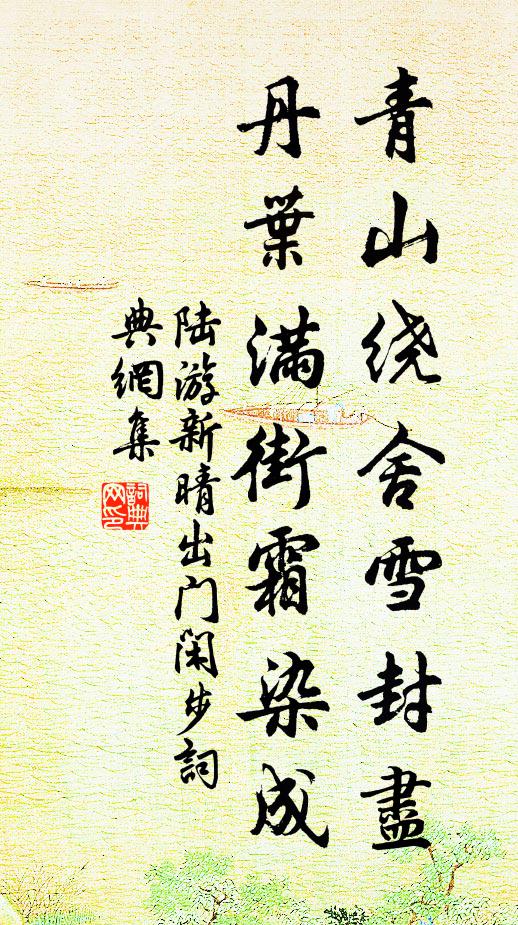 青山绕舍雪封盡
丹葉满街霜染成
陆游新晴出门闲步詞
典網集
詞典
网印